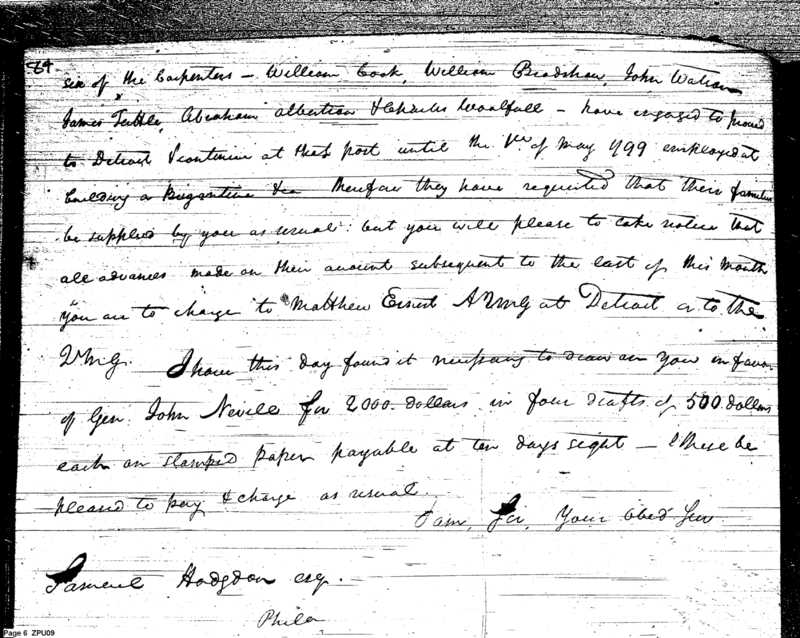 84
six of the Carpenters – William Cook, William Bradshaw, John Watson
James Tuttle, Abraham Albertson & Charles Woolfall – have engaged to proceed
to Detroit & continue at that post until the 1st of May 1799 employed at
building a Brigantine &ca therefore they have requested that their families
be supplied by you as usual: but you will please to take notice that
all advances made on their account subsequent to the last of this Month
you are to charge to Matthew Ernest AQMG at Detroit or to the
QMG. I have this day found it necessary to draw on you in favor
of Gen. John Nevill for 2000. dollars in four drafts of 500. dollars
each on stamped paper payable at ten days sight – these be
pleased to pay & charge as usual.
I am, Sir, Your Obed Serv
Samuel Hodgdon esq.
Phila
Page 6 ZPU09